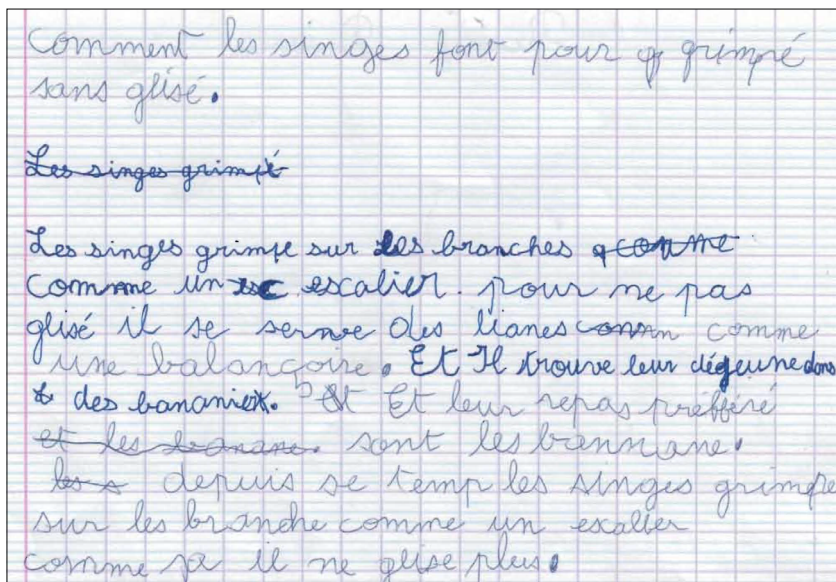 Comment les singes font pour g grimpé
sans glisé.
Les singes grimpé
Les singes grimpe sur les branches comme
comme un esc escalier. pour ne pas
glisé il se serve des lianes comme
une balançoire. Et Il trouve leur dégeune dans
des bananier. Et leur repas prefféré
et les banane. sont les bannane.
les s depuis se temp les singes grimpe
sur les branche comme un escalier
comme sa il ne glise plus.